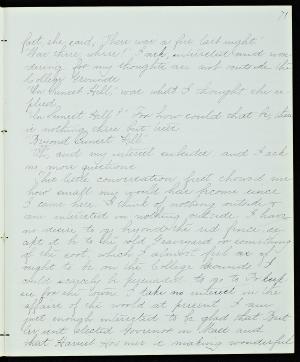 71
fact she said, "There was a fire last night."
"Was there, where?" I ask, interested and won-
dering for my thoughts are not outside the
College Grounds
"On Sunset Hill," was what I thought she re-
plied.
"On Sunset Hill?" "For how could that be, there
is nothing there but
Beyond Sunset Hill
Oh, and my interest and I ask
no more questions.
This little conversation first showed me
how small my world has become since
I came here. I think of nothing outside &
am interested in nothing outside. I have
no desire to go beyond the red fence, ex-
cept it be to the old Graveyard or something
of the sort, which I almost feel as if
ought to be on the College Grounds. I
could scarcely be persuaded to go to
for the town. I take no interest in the
affairs of the world at present. I am
not enough interested to be glad that But-
ler isn't elected Governor in Mass. and
that Harriet is making wonderful